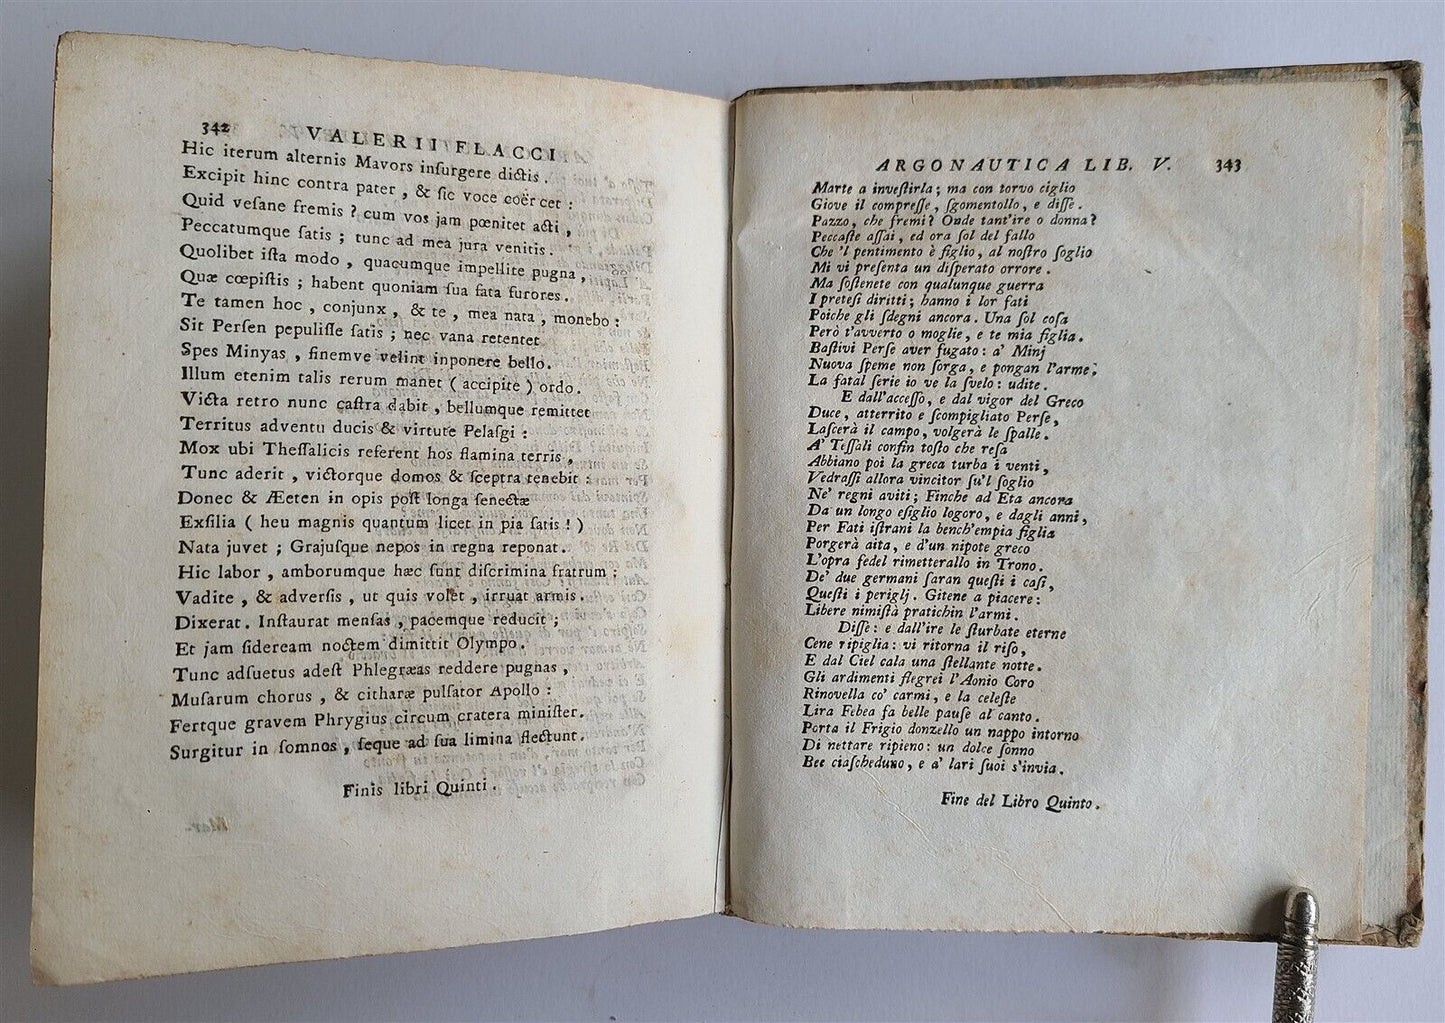 342 VALERII FLACCI
Hic iterum alternis Mavors inſurgere dictis.
Excipit hinc contra pater, & ſic voce coërcet:
Quid veſane fremis? cum vos jam pœnitet acti,
Peccatumque ſatis; tunc ad mea jura venitis.
Quolibet iſta modo, quacumque impellite pugna,
Quæ cœpiſtis; habent quoniam ſua fata furores.
Te tamen hoc, conjunx, & te, mea nata, monebo:
Sit Perſen pepuliſſe ſatis; nec vana retentet
Spes Minyas, finemve velint inponere bello.
Illum etenim talis rerum manet (accipite) ordo.
Victa retro nunc caſtra dabit, bellumque remittet
Territus adventu ducis & virtute Pelaſgi:
Mox ubi Theſſalicis referent hos flamina terris,
Tunc aderit, victorque domos & ſceptra tenebit:
Donec & Æeten in opis poſt longa ſenectæ
Exſilia (heu magnis quantum licet in pia fatis!)
Nata juvet; Grajuſque nepos in regna reponat.
Hic labor, amborumque hæc ſunt diſcrimina fratrum;
Vadite, & adverſis, ut quis volet, irruat armis.
Dixerat. Inſtaurat menſas, pacemque reducit;
Et jam ſideream noctem dimittit Olympo.
Tunc adſuetus adeſt Phlegræas reddere pugnas,
Muſarum chorus, & citharæ pulſator Apollo:
Fertque gravem Phrygius circum cratera miniſter.
Surgitur in ſomnos, ſeque ad ſua limina flectunt.
Finis libri Quinti.
ARGONAUTICA LIB. V. 343
Marte a inveſtirla; ma con torvo ciglio
Giove il compreſſe, ſgomentollo, e diſſe.
Pazzo, che fremi? Onde tant'ire o donna?
Peccaſte aſſai, ed ora ſol del fallo
Che 'l pentimento è figlio, al noſtro ſoglio
Mi vi preſenta un diſperato orrore.
Ma ſoſtenete con qualunque guerra
I preteſi diritti; hanno i lor fati
Poiche gli ſdegni ancora. Una ſol coſa
Però t'avverto o moglie, e te mia figlia.
Baſtivi Perſe aver fugato: a' Minj
Nuova ſpeme non ſorga, e pongan l'arme;
La fatal ſerie io ve la ſvelo: udite.
E dall'acceſſo, e dal vigor del Greco
Duce, atterrito e ſcompigliato Perſe,
Laſcerà il campo, volgerà le ſpalle.
A' Teſſali confin toſto che reſa
Abbiano poi la greca turba i venti,
Vedraſſi allora vincitor ſu'l ſoglio
Ne' regni aviti; Finche ad Eta ancora
Da un longo eſiglio logoro, e dagli anni,
Per Fati iſtrani la bench'empia figlia
Porgerà aita, e d'un nipote greco
L'opra fedel rimetterallo in Trono.
De' due germani ſaran queſti i caſi,
Queſti i periglj. Gitene a piacere:
Libere nimiſtà pratichin l'armi.
Diſſe: e dall'ire le ſturbate eterne
Cene ripiglia: vi ritorna il riſo,
E dal Ciel cala una ſtellante notte.
Gli ardimenti flegrei l'Aonio Coro
Rinovella co' carmi, e la celeſte
Lira Febea fa belle pauſe al canto.
Porta il Frigio donzello un nappo intorno
Di nettare ripieno: un dolce ſonno
Bee ciaſcheduno, e a' lari ſuoi s'invia.
Fine del Libro Quinto.